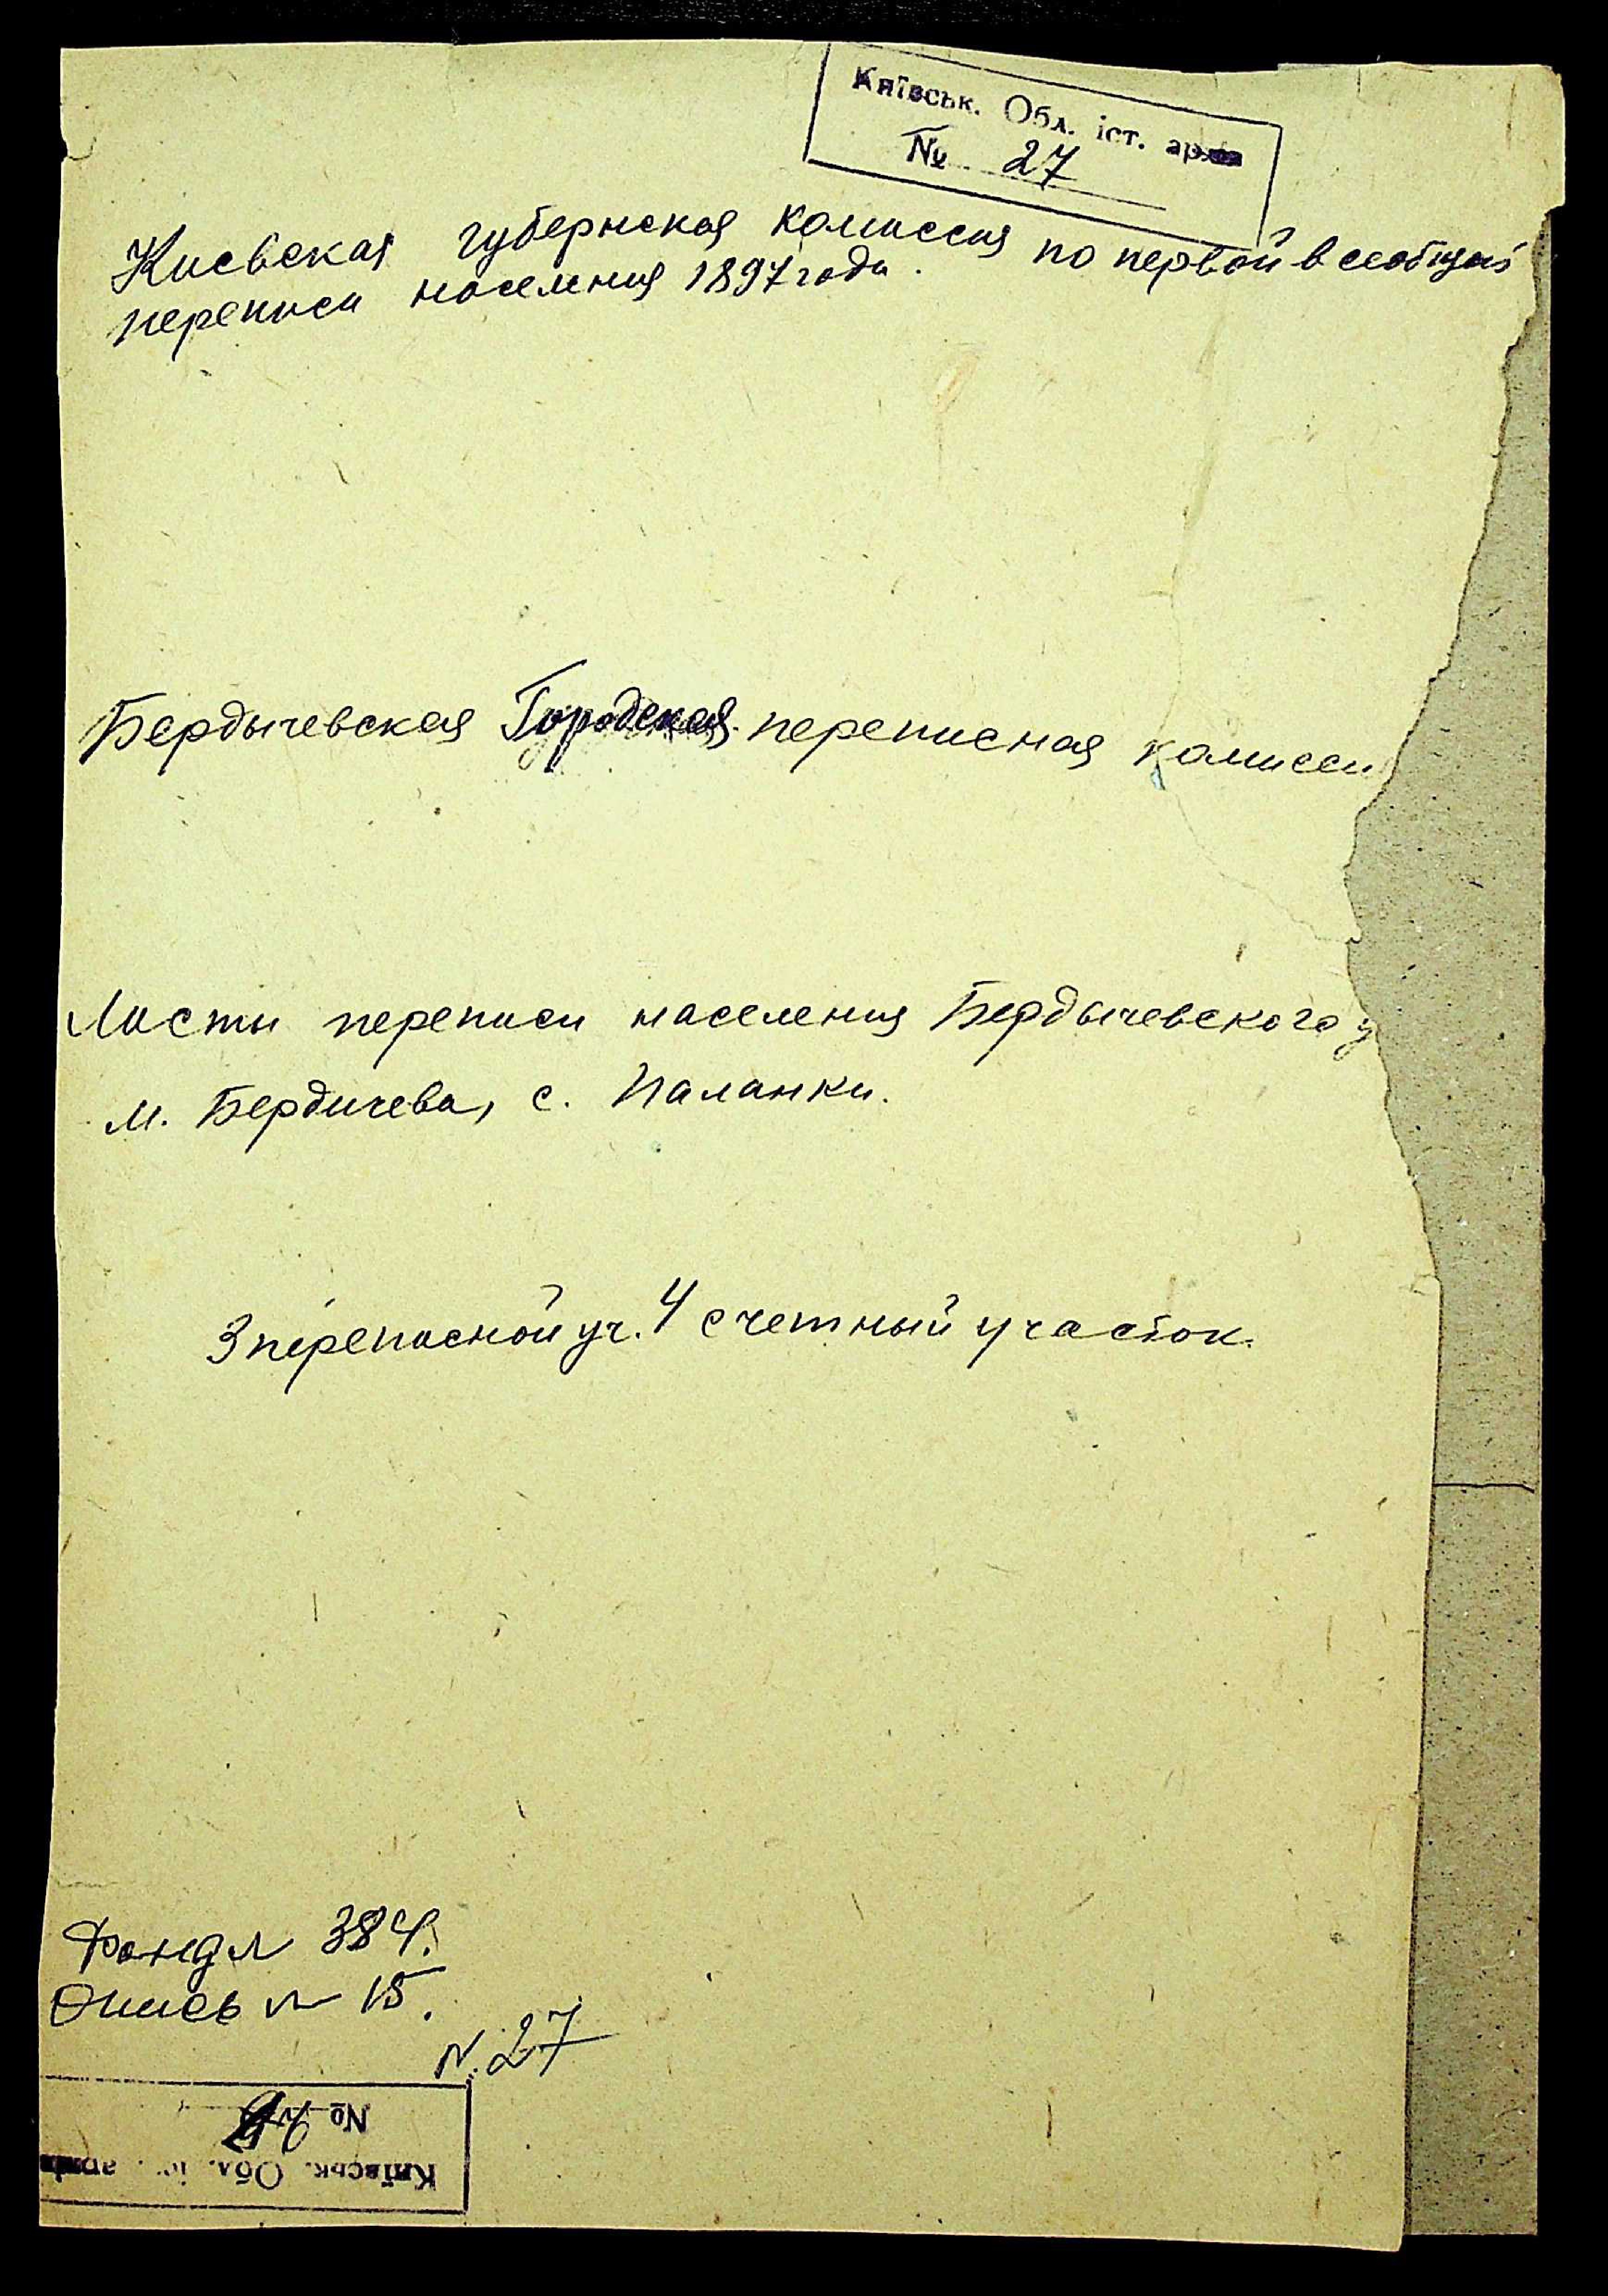 Київськ. Обл. іст. архив
№ 27
Киевская губернская комиссия по первой всеобщей
переписи населения 1897 года.
Бердычевская Городская переписная комисси
Листы переписи населения Бердычевского у
м. Бердичева, с. Паланки.
3 переписной уч. 4 счетный участок.
Фонд № 384.
Опись № 15.
N. 27
№
Київськ. Обл. іс. архив